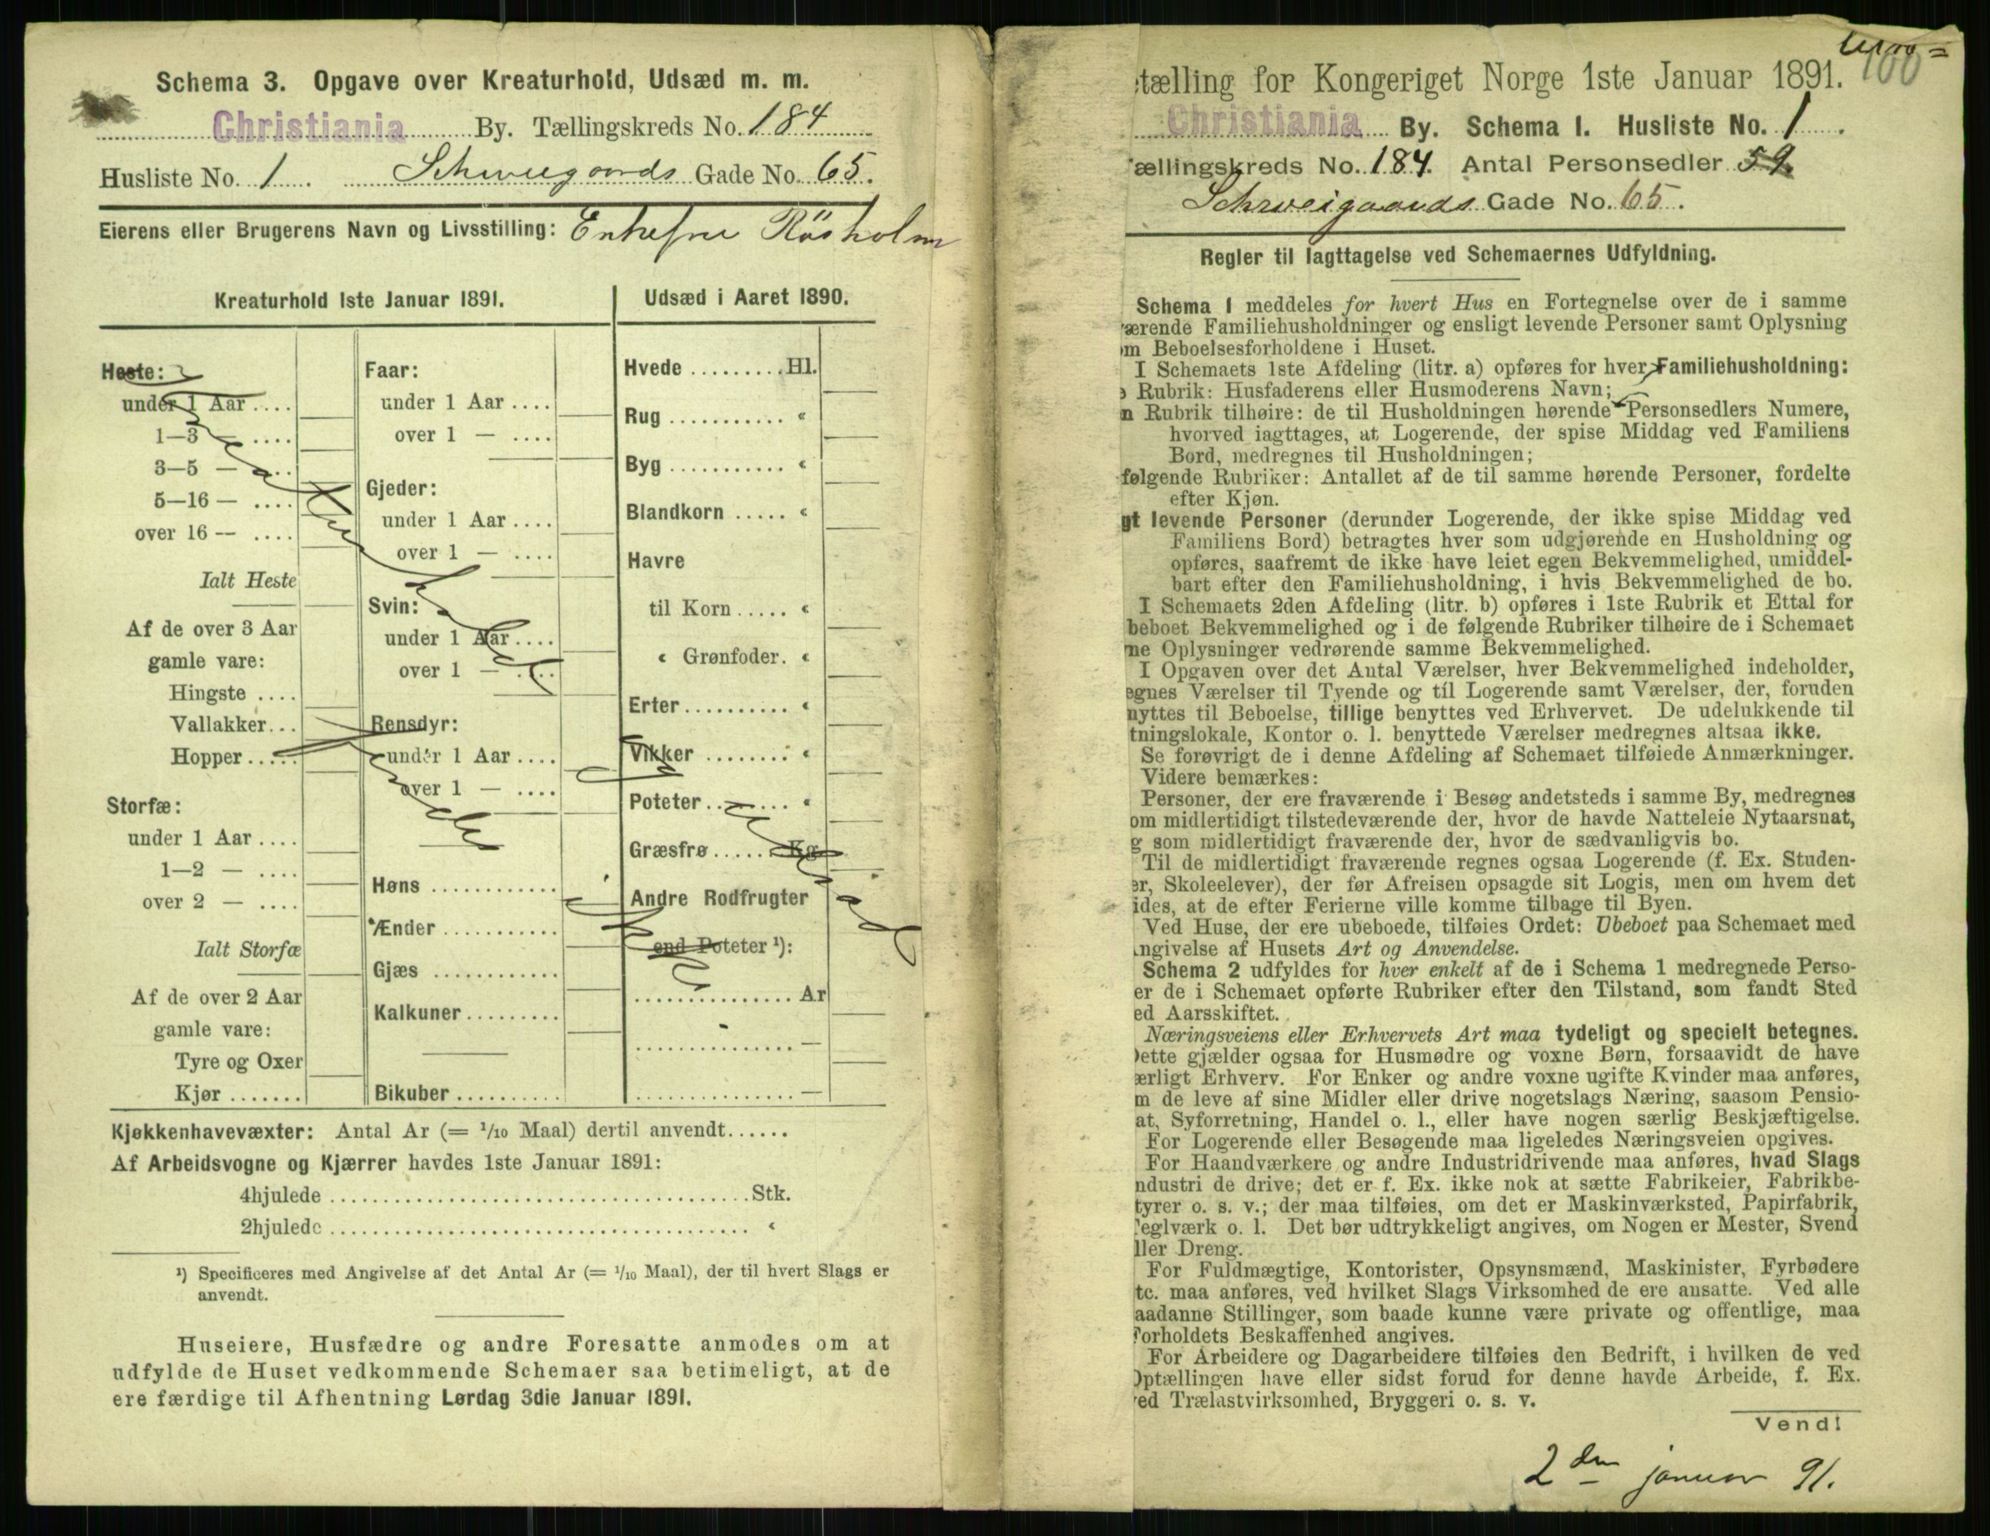 Schema 3. Opgave over Kreaturhold, Udsæd m. m.
Christiania By. Tællingskreds No. 184
Husliste No. 1 Schweigaards Gade No. 65.
Eierens eller Brugerens Navn og Livsstilling: Enkefru Rösholm
Kreaturhold 1ste Januar 1891.
Heste:
under 1 Aar ....
1—3 — ....
3—5 — ....
5—16 — ....
over 16 — ....
Ialt Heste
Af de over 3 Aar
gamle vare:
Hingste ....
Vallakker...
Hopper .....
Storfæ:
under 1 Aar ....
1—2 — ....
over 2 — ....
Ialt Storfæ
Af de over 2 Aar
gamle vare:
Tyre og Oxer
Kjør .......
Faar:
under 1 Aar ....
over 1 — ....
Gjeder:
under 1 Aar ....
over 1 — ....
Svin:
under 1 Aar ....
over 1 — ....
Rensdyr:
under 1 Aar ....
over 1 — ....
Høns ............
Ænder ...........
Gjæs ............
Kalkuner.........
Bikuber ..........
Udsæd i Aaret 1890.
Hvede .........Hl.
Rug ........... «
Byg ........... «
Blandkorn ..... «
Havre
til Korn ..... «
« Grønfoder. «
Erter.......... «
Vikker ........ «
Poteter........ «
Græsfrø ...... Kg
Andre Rodfrugter
end Poteter ¹):
............... Ar
............... —
............... —
Kjøkkenhavevæxter: Antal Ar (= 1/10 Maal) dertil anvendt......
Af Arbeidsvogne og Kjærrer havdes 1ste Januar 1891:
4hjulede ........................................Stk.
2hjulede ........................................ «
¹) Specificeres med Angivelse af det Antal Ar (= 1/10 Maal), der til hvert Slags er
anvendt.
Huseiere, Husfædre og andre Foresatte anmodes om at
udfylde de Huset vedkommende Schemaer saa betimeligt, at de
ere færdige til Afhentning Lørdag 3die Januar 1891.
100
tælling for Kongeriget Norge 1ste Januar 1891.
Christiania By. Schema I. Husliste No. 1.
ællingskreds No. 184. Antal Personsedler 59
Schweigaards Gade No. 65.
Regler til Iagttagelse ved Schemaernes Udfyldning.
Schema 1 meddeles for hvert Hus en Fortegnelse over de i samme
ærende Familiehusholdninger og ensligt levende Personer samt Oplysning
m Beboelsesforholdene i Huset.
I Schemaets 1ste Afdeling (litr. a) opføres for hver Familiehusholdning:
Rubrik: Husfaderens eller Husmoderens Navn;
n Rubrik tilhøire: de til Husholdningen hørende Personsedlers Numere,
hvorved iagttages, at Logerende, der spise Middag ved Familiens
Bord, medregnes til Husholdningen;
følgende Rubriker: Antallet af de til samme hørende Personer, fordelte
efter Kjøn.
gt levende Personer (derunder Logerende, der ikke spise Middag ved
Familiens Bord) betragtes hver som udgjørende en Husholdning og
opføres, saafremt de ikke have leiet egen Bekvemmelighed, umiddel-
bart efter den Familiehusholdning, i hvis Bekvemmelighed de bo.
I Schemaets 2den Afdeling (litr. b) opføres i 1ste Rubrik et Ettal for
beboet Bekvemmelighed og i de følgende Rubriker tilhøire de i Schemaet
ne Oplysninger vedrørende samme Bekvemmelighed.
I Opgaven over det Antal Værelser, hver Bekvemmelighed indeholder,
egnes Værelser til Tyende og til Logerende samt Værelser, der, foruden
nyttes til Beboelse, tillige benyttes ved Erhvervet. De udelukkende til
tningslokale, Kontor o. l. benyttede Værelser medregnes altsaa ikke.
Se forøvrigt de i denne Afdeling af Schemaet tilføiede Anmærkninger.
Videre bemærkes:
Personer, der ere fraværende i Besøg andetsteds i samme By, medregnes
om midlertidigt tilstedeværende der, hvor de havde Natteleie Nytaarsnat,
g som midlertidigt fraværende der, hvor de sædvanligvis bo.
Til de midlertidigt fraværende regnes ogsaa Logerende (f. Ex. Studen-
er, Skoleelever), der før Afreisen opsagde sit Logis, men om hvem det
ides, at de efter Ferierne ville komme tilbage til Byen.
Ved Huse, der ere ubeboede, tilføies Ordet: Ubeboet paa Schemaet med
ngivelse af Husets Art og Anvendelse.
Schema 2 udfyldes for hver enkelt af de i Schema 1 medregnede Perso-
er de i Schemaet opførte Rubriker efter den Tilstand, som fandt Sted
ed Aarsskiftet.
Næringsveiens eller Erhvervets Art maa tydeligt og specielt betegnes.
ette gjælder ogsaa for Husmødre og voxne Børn, forsaavidt de have
ærligt Erhverv. For Enker og andre voxne ugifte Kvinder maa anføres,
m de leve af sine Midler eller drive nogetslags Næring, saasom Pensio-
at, Syforretning, Handel o. l., eller have nogen særlig Beskjæftigelse.
For Logerende eller Besøgende maa ligeledes Næringsveien opgives.
For Haandværkere og andre Industridrivende maa anføres, hvad Slags
ndustri de drive; det er f. Ex. ikke nok at sætte Fabrikeier, Fabrikbe-
tyrer o. s. v.; der maa tilføies, om det er Maskinværksted, Papirfabrik,
eglværk o. l. Det bør udtrykkeligt angives, om Nogen er Mester, Svend
ller Dreng.
For Fuldmægtige, Kontorister, Opsynsmænd, Maskinister, Fyrbødere
tc. maa anføres, ved hvilket Slags Virksomhed de ere ansatte. Ved alle
aadanne Stillinger, som baade kunne være private og offentlige, maa
orholdets Beskaffenhed angives.
For Arbeidere og Dagarbeidere tilføies den Bedrift, i hvilken de ved
Optællingen have eller sidst forud for denne havde Arbeide, f. Ex.
ed Trælastvirksomhed, Bryggeri o. s. v.
Vend!
2den januar 91.